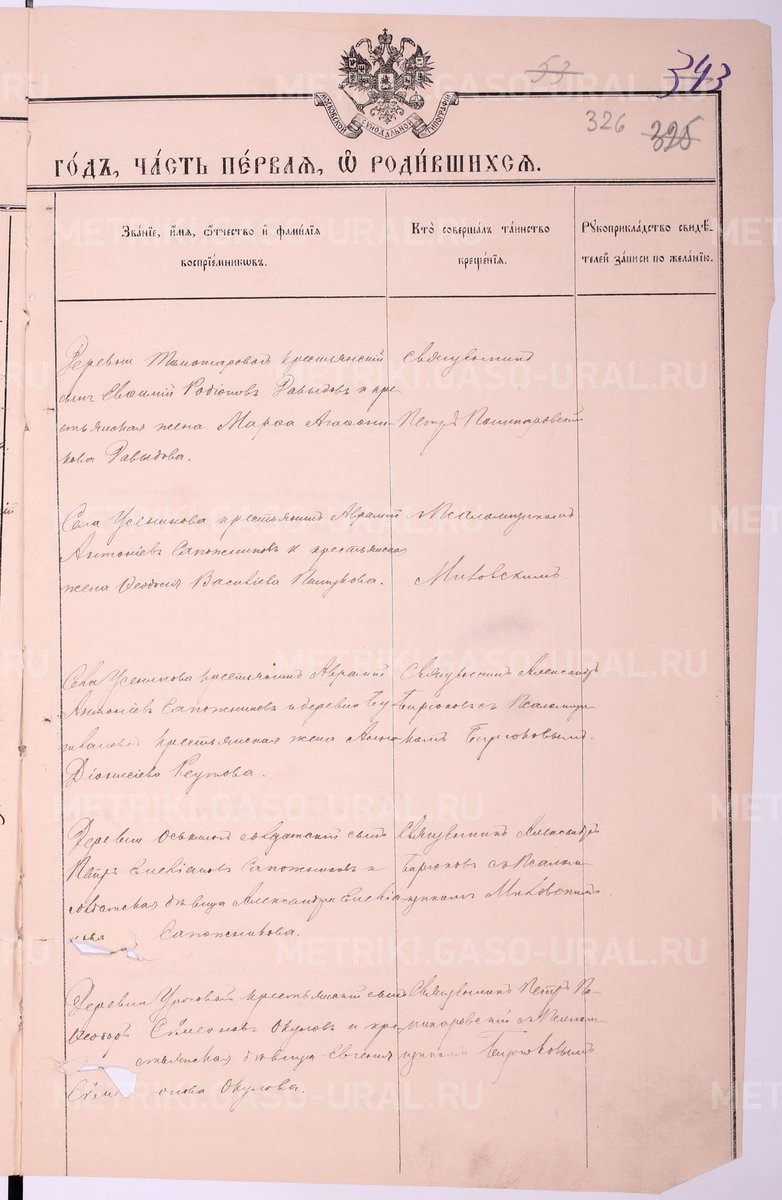 53
343
326
325
МОСКОВСКОЙ СѴНОДАЛЬНОЙ ТИПОГРАФІИ
ГОДЪ, ЧАСТЬ ПЕРВАЯ, Ѡ РОДИВШИХСЯ.
Званіе, имя, отчество и фамилія воспріемниковъ.
Кто совершалъ таинство крещенія.
Рукоприкладство свидѣтелей записи по желанію.
Деревни крестьянскій
сынъ Евсимій Родіоновъ Давыдовъ и кре
стьянская жена Марѳа Агаѳони
кова Давыдова.
Священникъ
Петръ Пономаровскій
Села Усенинова крестьянинъ Аврамій
Антоніевъ Сапожниковъ и крестьянская
жена Ѳеодосія Васильева
съ Псаломщикомъ
Миковскимъ
Села Усенинова крестьянинъ Аврамій
Антоніевъ Сапожниковъ и деревни Бу
крестьянская жена Анна
Діонисіева Реутова.
Священникъ Александръ
Бирюковъ съ Псаломщи
комъ Бирюковымъ.
Деревни солдатскій сынъ
Петръ Сапожниковъ и
солдатская дѣвица Александра
Сапожникова.
Священникъ Александръ
Бирюковъ съ Псалом
щикомъ Миковскимъ.
Деревни Урусовой крестьянскій сынъ
Ѳеодоръ Сѵмеоновъ Окуловъ и кре
стьянская дѣвица Евгенія
Сѵме онова Окулова.
Священникъ Петръ По
номаровскій съ Псалом
щикомъ Бирюковымъ
METRIKI.GASO-URAL.RU